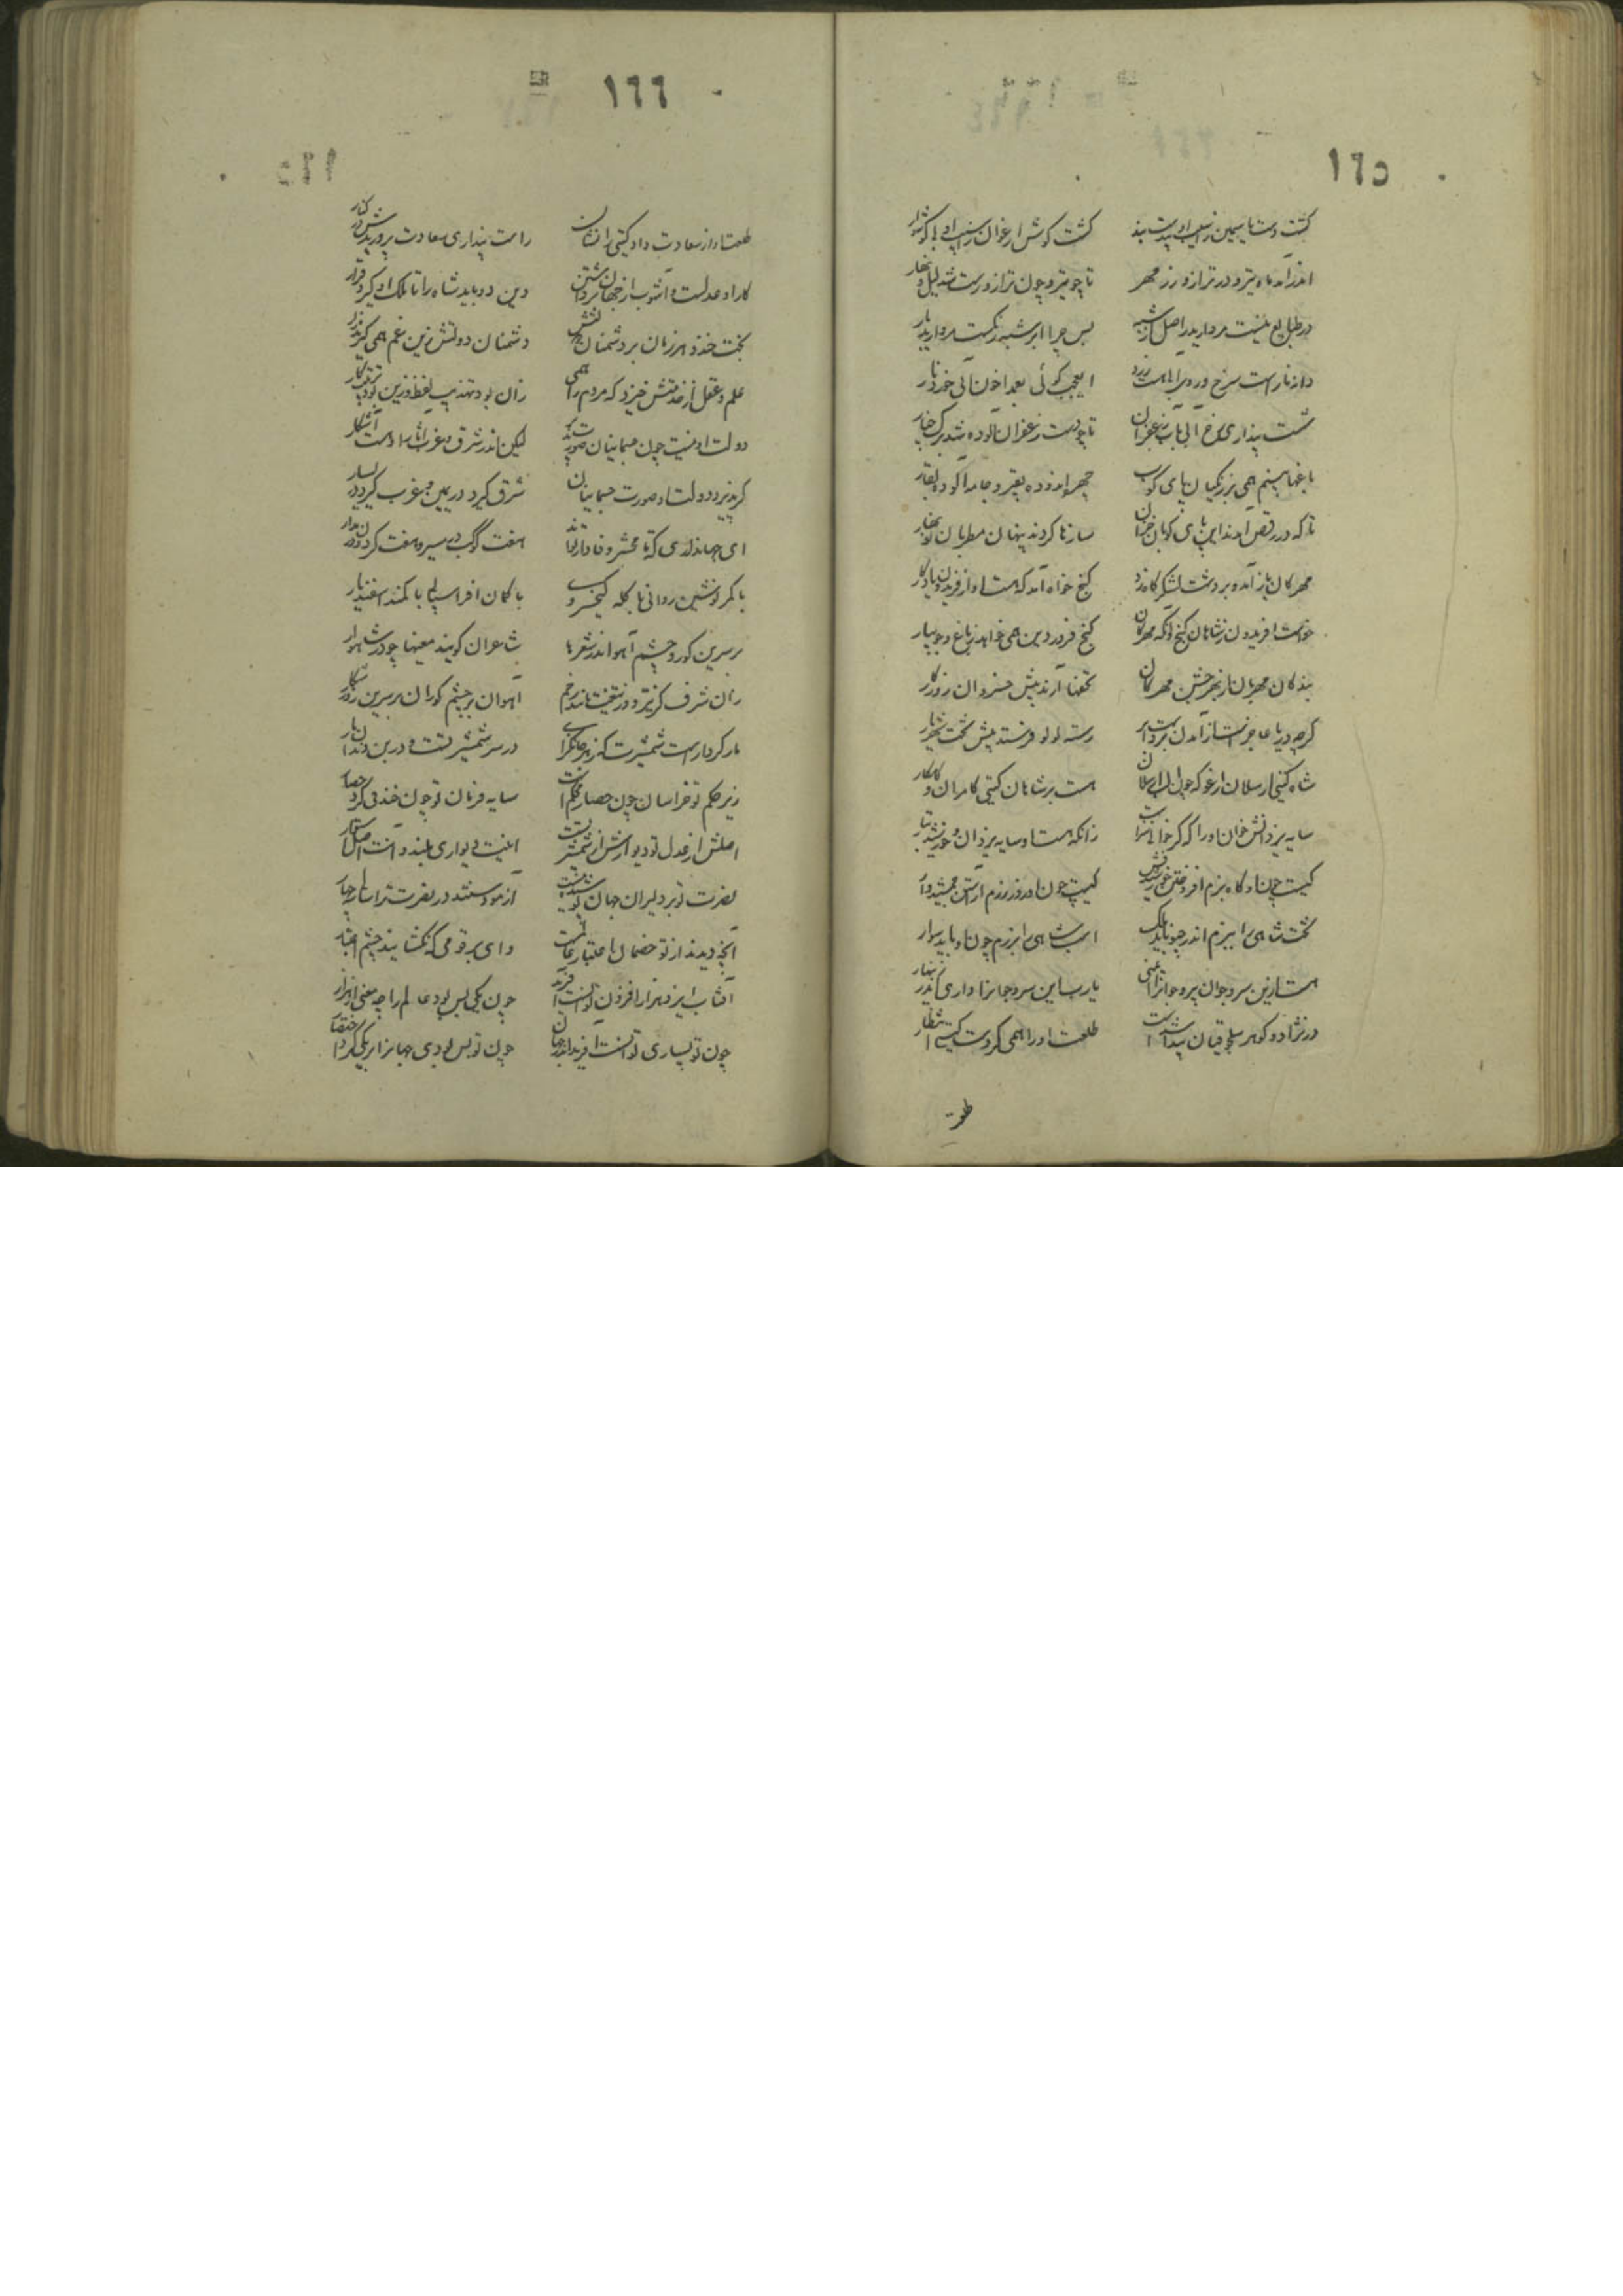 ١٦٥
گشت دست یاسمین از سیب او بدست بند گشت گوش ارغوان از سنبل او با گوشوار
اندر آمد ماه تیر و در ترازو رزم مهر تا چو تیر و چون ترازو راست شد لیل و نهار
در طبایع نیست مروارید را اصل از شبه پس چرا ابر شبه رنگست مروارید بار
دانه نار است سرخ و روی آبی هست زرد ای عجب گوئی بعمدا خون آبی خورد نار
شست پنداری رخ آبی بآب زعفران تا چو دست زعفران آلوده شد برگ چنار
باغها بینم همی بر زنگیان پای کوب چهر اندوده بقیر و جامه آلوده بقار
تا که در رقص آمدند این پای کوبان خزان سازها کردند پنهان مطربان نوبهار
مهرگان باز آمد و بر دشت لشکرگاه زد گنج خواه آمد که هست او از فریدون یادگار
خواست افریدون ز شاهان گنج و آنگه مهرگان گنج فروردین همی خواهد ز باغ و جویبار
بندگان مهربان از بهر جشن مهرگان تحفها آرند پیش خسروان روزگار
گرچه دریا عاجز است از آمدن بر دست ابر رشته لولو فرستد پیش تخت شهریار
شاه گیتی ارسلان ارغو که چون الب ارسلان هست بر شاهان گیتی کامران و کامکار
سایه یزدانش خوان او را که گر خوانی سزاست زانکه هست او سایه یزدان و خورشید تبار
کیست چون او گاه بزم افروختن خورشیدفش کیست چون او روز رزم آراستن جمشیدوار
تخت شاهی را ببزم اندر چنو باید ملک اسب شاهی را برزم چون او باید سوار
هست ازین سرو جوان پیر و جوانرا ایمنی یارب این سرو جوانرا داری اندر زینهار
در نژاد و گوهر سلجوقیان پیدا شدست طلعت او را همی کردست گیتی انتظار
طلعت
١٦٦
طلعت او از سعادت داد گیتی را نشان راست پنداری سعادت پروریدش در کنار
کار او عدلست و آشوب از جهان برداشتن دین و داد باید شاه را تا ملک او گیرد قرار
بخت خندد هر زمان بر دشمنان دولتش دشمنان دولتش زین غم همی گریند زار
علم و عقل از خدمتش خیزد که مردم را همی زان بود تهذیب لفظ و زین بود ترتیب کار
دولت او نیست چون جسمانیان صورت پذیر لیکن اندر شرق و غرب آثار او هست آشکار
گر پذیرد دولت او صورت جسمانیان شرق گیرد در یمین و غرب گیرد در یسار
ای جهانداری که تا محشر وفا دارند هفت کوکب در مسیر و هفت گردون در مدار
با کمر نوشین روانی با کله کیخسروی با کمان افراسیابی با کمند اسفندیار
بر سرین گور و چشم آهو اندر شعرها شاعران گویند معنیها چو در شاهوار
زان شرف کز تیر و از تیغت خورند زخم آهوان بر چشم و گوران بر سرین روز شکار
مار کردار است شمشیرت که زهر جانگزای در سر شمشیر تست و در بن دندان مار
زیر حکم تو خراسان چون حصار محکم است سایه فرمان تو چون خندقی گرد حصار
اصلش از عدل تو دیوارش از شمشیر تست اینت دیواری بلند و آنت اصل استوار
نصرت تو بر دلیران جهان پوشیده نیست آزمودستند در نصرت ترا سالی چهار
آنچه دیدند از تو خصمان اعتبار عالمست وای بر قومی که نگشایند چشم اعتبار
آفتاب ایزد هزار افزون توانست آفرید چون یکی بس بود عالم را چه معنی از هزار
چون تو بسیاری توانست آفرید اندر جهان چون تو بس بودی جهانرا بر یکی کرد اختصار